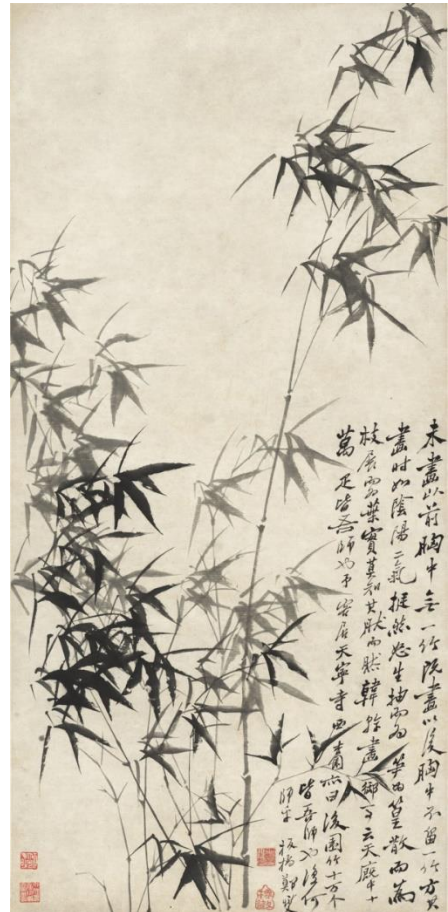 未畫以前胸中無一竹既畫以後胸中不留一竹方其
畫時如陰陽二氣挺然怒生抽而為筍為篁散而為
枝展而為葉實莫知其然而然韓幹畫御馬云天廄中十
萬疋皆吾師也予客居天寧寺西杏園亦曰後園竹十萬个
皆吾師也復何
師乎板橋鄭燮